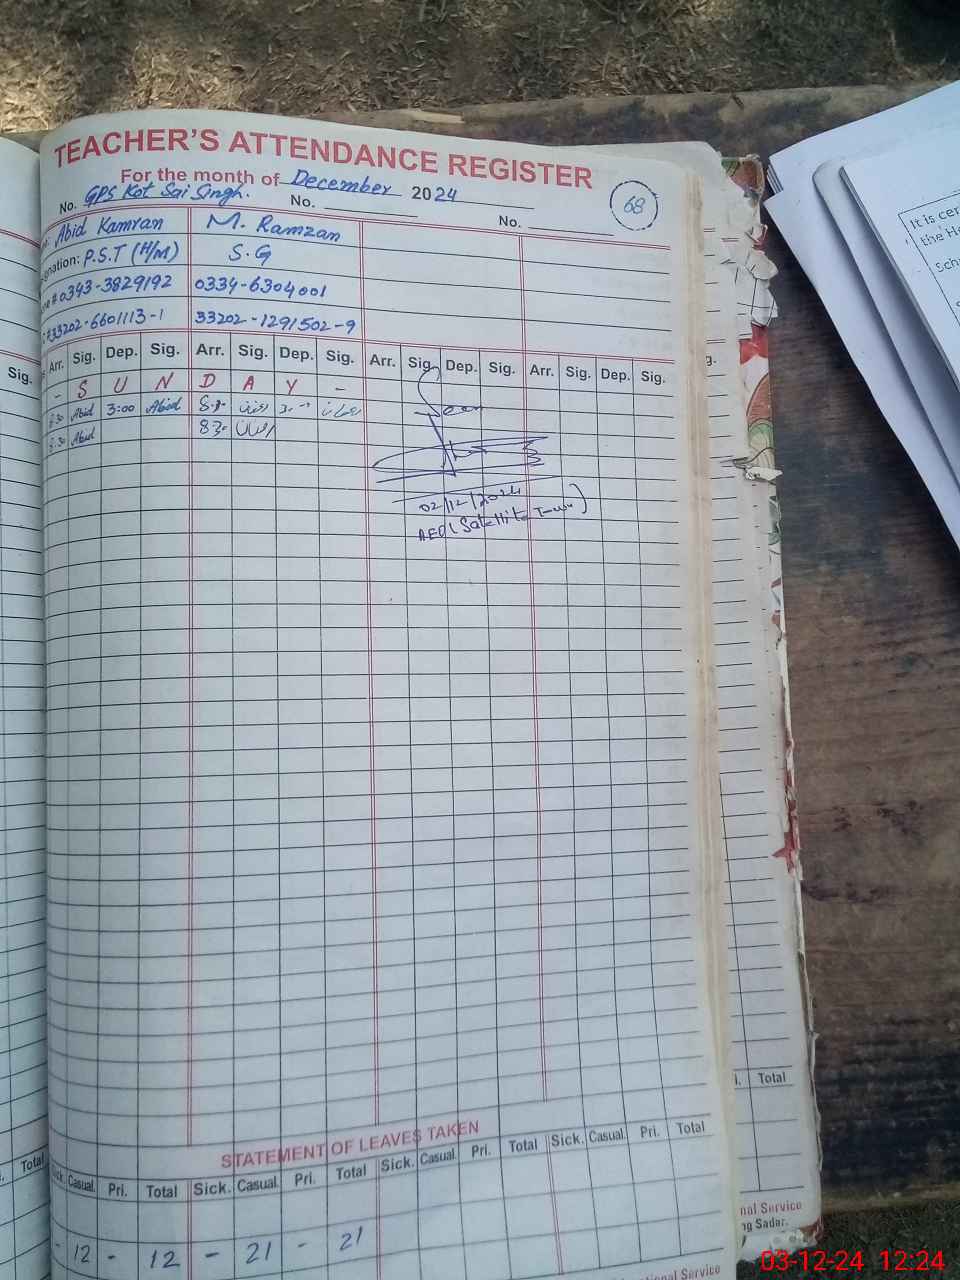 TEACHER'S ATTENDANCE REGISTER
For the month of December 2024
No. GPS Kot Sai Singh. No. No. 68
Abid Kamran M. Ramzan
gnation: P.S.T (H/M) S.G
0343-3829192 0334-6304001
33202-6601113-1 33202-1291502-9
Sig. Arr. Sig. Dep. Sig. Arr. Sig. Dep. Sig. Arr. Sig. Dep. Sig. Arr. Sig. Dep. Sig. g.
- S U N D A Y -
8:30 Abid 3:00 Abid
8:30 Abid 830
Seen
02/12/2024
AEO (Satellite Town)
STATEMENT OF LEAVES TAKEN
Total Casual. Pri. Total Sick. Casual. Pri. Total Sick. Casual. Pri. Total Sick. Casual. Pri. Total i. Total
- 12 - 12 - 21 - 21
ational Service
nal Service
ng Sadar.
It is cer
the He
Sch
03-12-24 12:24